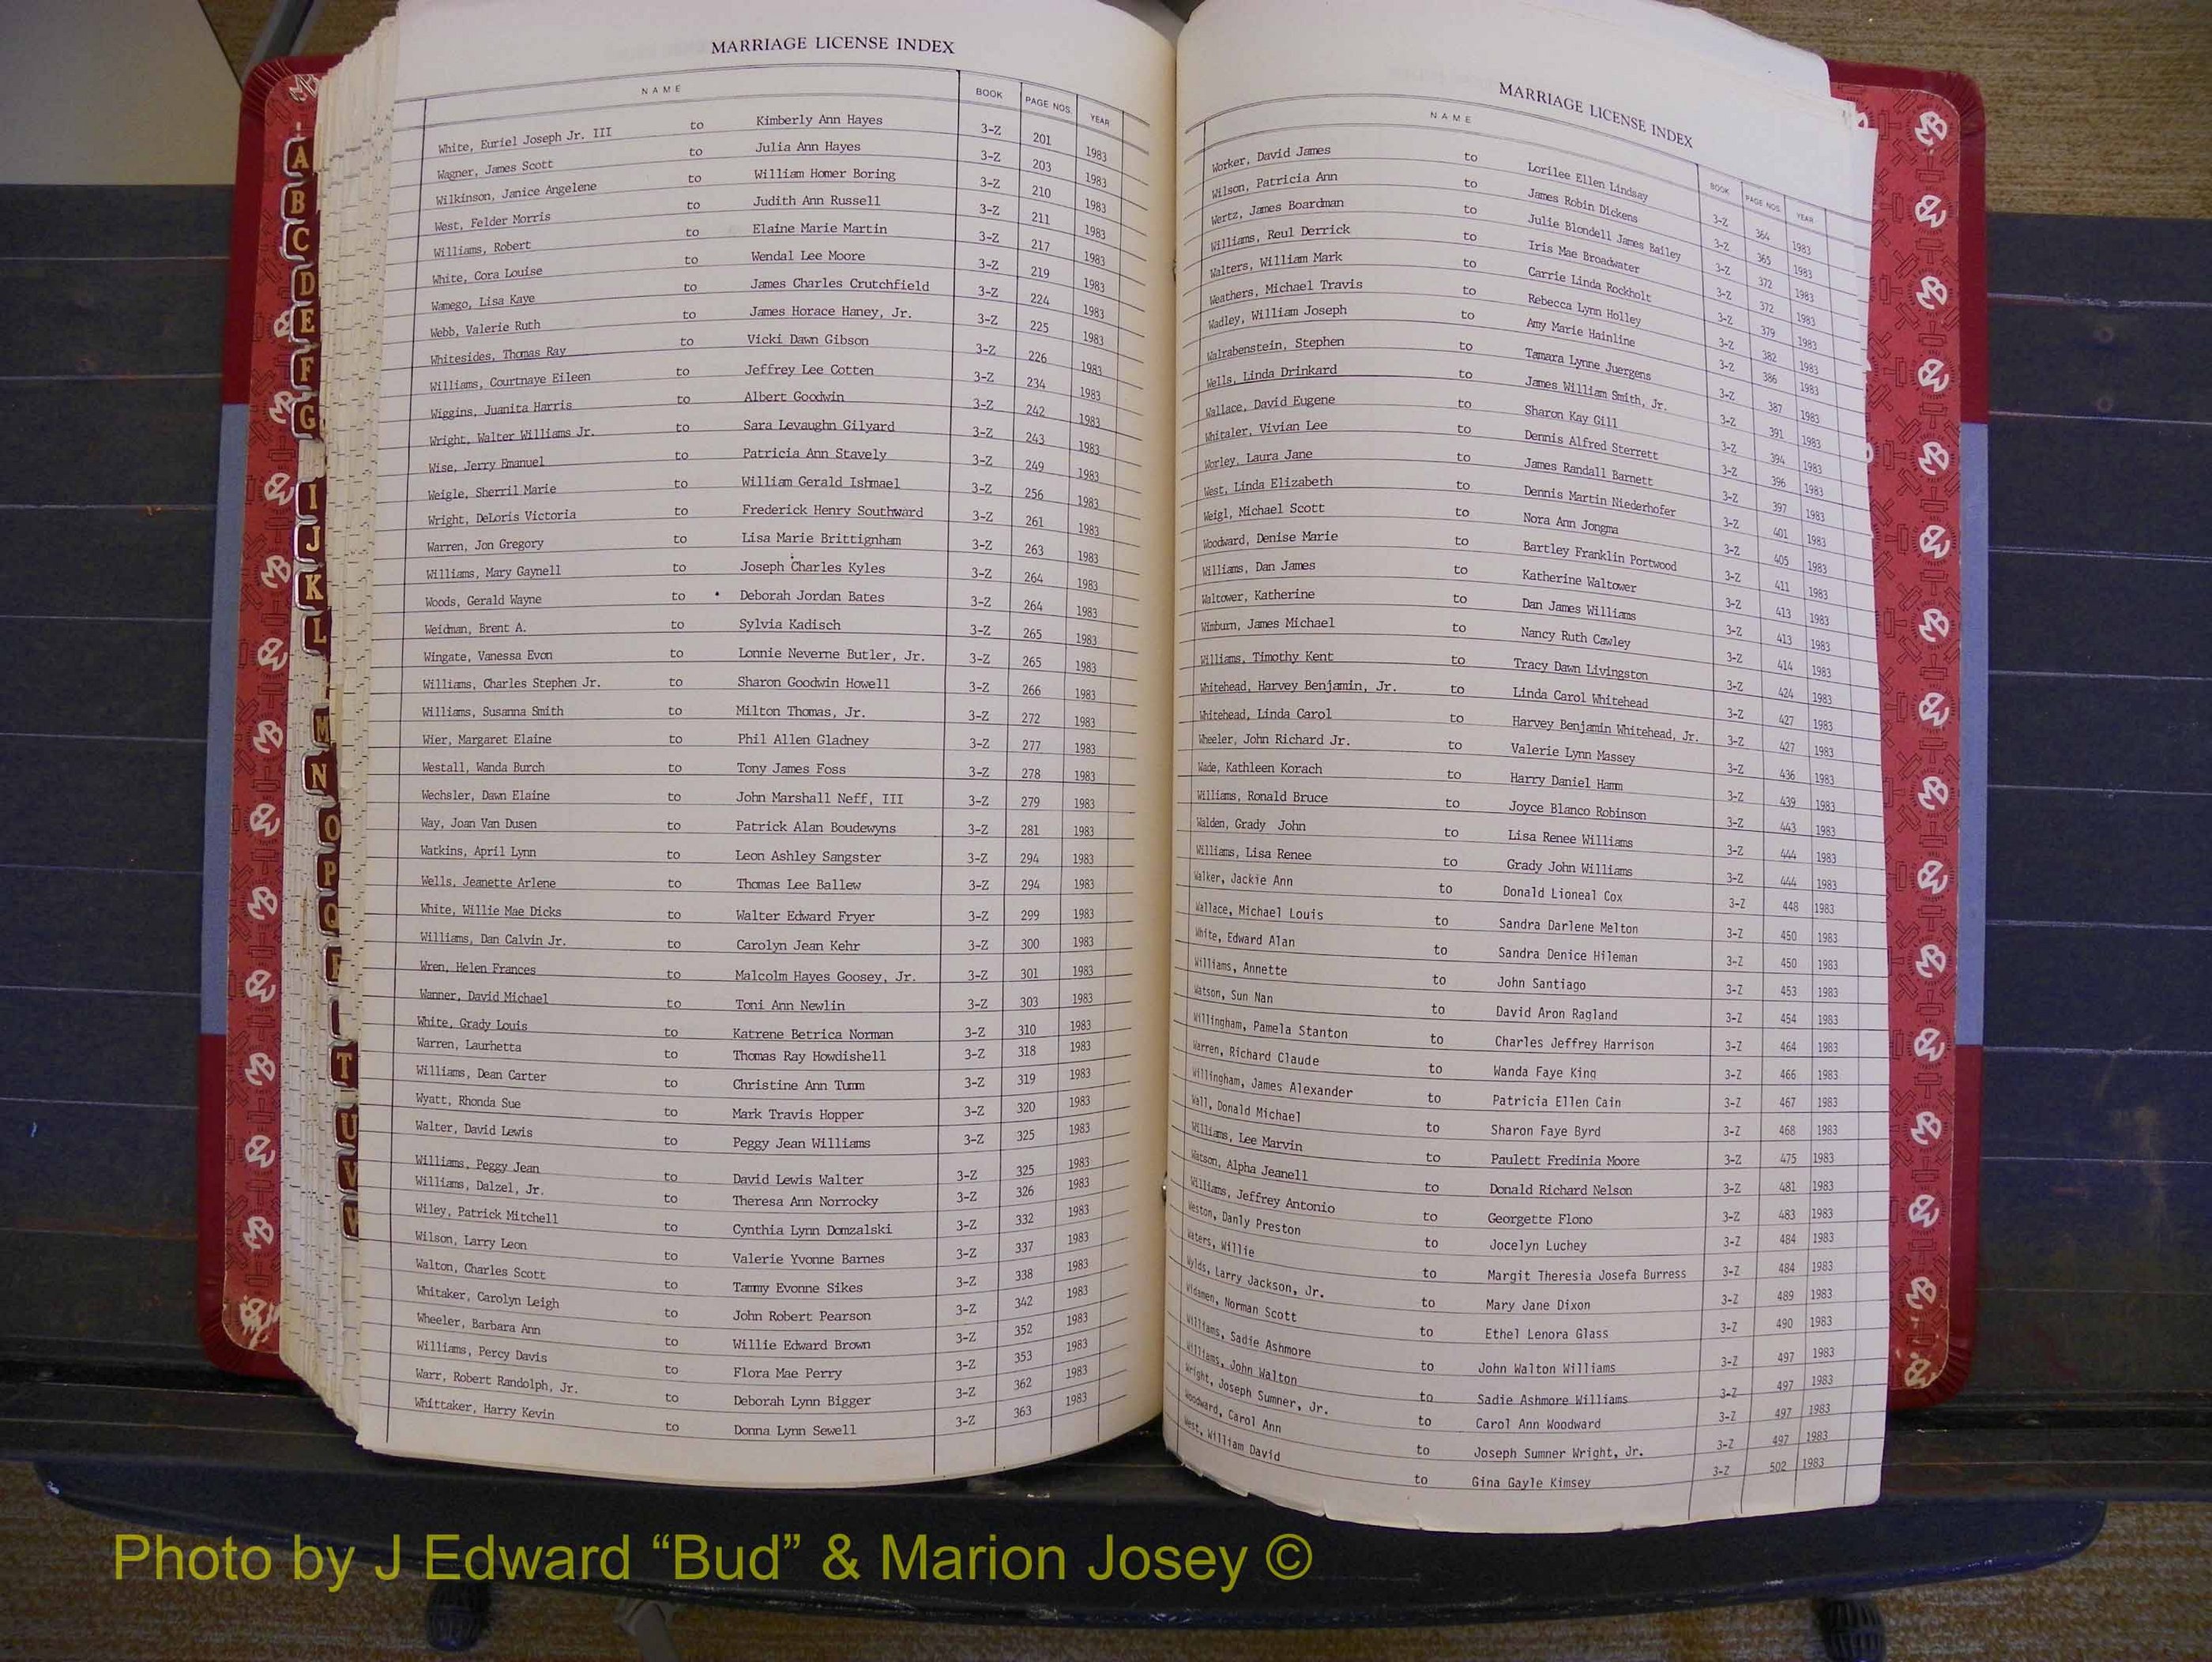 MARRIAGE LICENSE INDEX
NAME BOOK PAGE NOS. YEAR
White, Euriel Joseph Jr. III to Kimberly Ann Hayes 3-Z 201 1983
Wagner, James Scott to Julia Ann Hayes 3-Z 203 1983
Wilkinson, Janice Angelene to William Homer Boring 3-Z 210 1983
West, Felder Morris to Judith Ann Russell 3-Z 211 1983
Williams, Robert to Elaine Marie Martin 3-Z 217 1983
White, Cora Louise to Wendal Lee Moore 3-Z 219 1983
Wamego, Lisa Kaye to James Charles Crutchfield 3-Z 224 1983
Webb, Valerie Ruth to James Horace Haney, Jr. 3-Z 225 1983
Whitesides, Thomas Ray to Vicki Dawn Gibson 3-Z 226 1983
Williams, Courtnaye Eileen to Jeffrey Lee Cotten 3-Z 234 1983
Wiggins, Juanita Harris to Albert Goodwin 3-Z 242 1983
Wright, Walter Williams Jr. to Sara Levaughn Gilyard 3-Z 243 1983
Wise, Jerry Emanuel to Patricia Ann Stavely 3-Z 249 1983
Weigle, Sherril Marie to William Gerald Ishmael 3-Z 256 1983
Wright, DeLoris Victoria to Frederick Henry Southward 3-Z 261 1983
Warren, Jon Gregory to Lisa Marie Brittignham 3-Z 263 1983
Williams, Mary Gaynell to Joseph Charles Kyles 3-Z 264 1983
Woods, Gerald Wayne to Deborah Jordan Bates 3-Z 264 1983
Weidman, Brent A. to Sylvia Kadisch 3-Z 265 1983
Wingate, Vanessa Evon to Lonnie Neverne Butler, Jr. 3-Z 265 1983
Williams, Charles Stephen Jr. to Sharon Goodwin Howell 3-Z 266 1983
Williams, Susanna Smith to Milton Thomas, Jr. 3-Z 272 1983
Wier, Margaret Elaine to Phil Allen Gladney 3-Z 277 1983
Westall, Wanda Burch to Tony James Foss 3-Z 278 1983
Wechsler, Dawn Elaine to John Marshall Neff, III 3-Z 279 1983
Way, Joan Van Dusen to Patrick Alan Boudewyns 3-Z 281 1983
Watkins, April Lynn to Leon Ashley Sangster 3-Z 294 1983
Wells, Jeanette Arlene to Thomas Lee Ballew 3-Z 294 1983
White, Willie Mae Dicks to Walter Edward Fryer 3-Z 299 1983
Williams, Dan Calvin Jr. to Carolyn Jean Kehr 3-Z 300 1983
Wren, Helen Frances to Malcolm Hayes Goosey, Jr. 3-Z 301 1983
Wanner, David Michael to Toni Ann Newlin 3-Z 303 1983
White, Grady Louis to Katrene Betrica Norman 3-Z 310 1983
Warren, Laurhetta to Thomas Ray Howdishell 3-Z 318 1983
Williams, Dean Carter to Christine Ann Tumm 3-Z 319 1983
Wyatt, Rhonda Sue to Mark Travis Hopper 3-Z 320 1983
Walter, David Lewis to Peggy Jean Williams 3-Z 325 1983
Williams, Peggy Jean to David Lewis Walter 3-Z 325 1983
Williams, Dalzel, Jr. to Theresa Ann Norrocky 3-Z 326 1983
Wiley, Patrick Mitchell to Cynthia Lynn Domzalski 3-Z 332 1983
Wilson, Larry Leon to Valerie Yvonne Barnes 3-Z 337 1983
Walton, Charles Scott to Tammy Evonne Sikes 3-Z 338 1983
Whitaker, Carolyn Leigh to John Robert Pearson 3-Z 342 1983
Wheeler, Barbara Ann to Willie Edward Brown 3-Z 352 1983
Williams, Percy Davis to Flora Mae Perry 3-Z 353 1983
Warr, Robert Randolph, Jr. to Deborah Lynn Bigger 3-Z 362 1983
Whittaker, Harry Kevin to Donna Lynn Sewell 3-Z 363 1983
MARRIAGE LICENSE INDEX
NAME BOOK PAGE NOS. YEAR
Worker, David James to Lorilee Ellen Lindsay 3-Z 364 1983
Wilson, Patricia Ann to James Robin Dickens 3-Z 365 1983
Wertz, James Boardman to Julie Blondell James Bailey 3-Z 372 1983
Williams, Reul Derrick to Iris Mae Broadwater 3-Z 372 1983
Walters, William Mark to Carrie Linda Rockholt 3-Z 379 1983
Weathers, Michael Travis to Rebecca Lynn Holley 3-Z 382 1983
Wadley, William Joseph to Amy Marie Hainline 3-Z 386 1983
Walrabenstein, Stephen to Tamara Lynne Juergens 3-Z 387 1983
Wells, Linda Drinkard to James William Smith, Jr. 3-Z 391 1983
Wallace, David Eugene to Sharon Kay Gill 3-Z 394 1983
Whitaler, Vivian Lee to Dennis Alfred Sterrett 3-Z 396 1983
Worley, Laura Jane to James Randall Barnett 3-Z 397 1983
West, Linda Elizabeth to Dennis Martin Niederhofer 3-Z 401 1983
Weigl, Michael Scott to Nora Ann Jongma 3-Z 405 1983
Woodward, Denise Marie to Bartley Franklin Portwood 3-Z 411 1983
Williams, Dan James to Katherine Waltower 3-Z 413 1983
Waltower, Katherine to Dan James Williams 3-Z 413 1983
Wimburn, James Michael to Nancy Ruth Cawley 3-Z 414 1983
Williams, Timothy Kent to Tracy Dawn Livingston 3-Z 424 1983
Whitehead, Harvey Benjamin, Jr. to Linda Carol Whitehead 3-Z 427 1983
Whitehead, Linda Carol to Harvey Benjamin Whitehead, Jr. 3-Z 427 1983
Wheeler, John Richard Jr. to Valerie Lynn Massey 3-Z 436 1983
Wade, Kathleen Korach to Harry Daniel Hamm 3-Z 439 1983
Williams, Ronald Bruce to Joyce Blanco Robinson 3-Z 443 1983
Walden, Grady John to Lisa Renee Williams 3-Z 444 1983
Williams, Lisa Renee to Grady John Williams 3-Z 444 1983
Walker, Jackie Ann to Donald Lioneal Cox 3-Z 448 1983
Wallace, Michael Louis to Sandra Darlene Melton 3-Z 450 1983
White, Edward Alan to Sandra Denice Hileman 3-Z 450 1983
Williams, Annette to John Santiago 3-Z 453 1983
Watson, Sun Nan to David Aron Ragland 3-Z 454 1983
Willingham, Pamela Stanton to Charles Jeffrey Harrison 3-Z 464 1983
Warren, Richard Claude to Wanda Faye King 3-Z 466 1983
Willingham, James Alexander to Patricia Ellen Cain 3-Z 467 1983
Wall, Donald Michael to Sharon Faye Byrd 3-Z 468 1983
Williams, Lee Marvin to Paulett Fredinia Moore 3-Z 475 1983
Watson, Alpha Jeanell to Donald Richard Nelson 3-Z 481 1983
Williams, Jeffrey Antonio to Georgette Flono 3-Z 483 1983
Weston, Danly Preston to Jocelyn Luchey 3-Z 484 1983
Waters, Willie to Margit Theresia Josefa Burress 3-Z 484 1983
Wylds, Larry Jackson, Jr. to Mary Jane Dixon 3-Z 489 1983
Widamen, Norman Scott to Ethel Lenora Glass 3-Z 490 1983
Williams, Sadie Ashmore to John Walton Williams 3-Z 497 1983
Williams, John Walton to Sadie Ashmore Williams 3-Z 497 1983
Wright, Joseph Sumner, Jr. to Carol Ann Woodward 3-Z 497 1983
Woodward, Carol Ann to Joseph Sumner Wright, Jr. 3-Z 497 1983
West, William David to Gina Gayle Kimsey 3-Z 502 1983
A
B
C
D
E
F
G
I
J
K
L
M
N
O
P
Q
T
U
V
Photo by J Edward “Bud” & Marion Josey ©